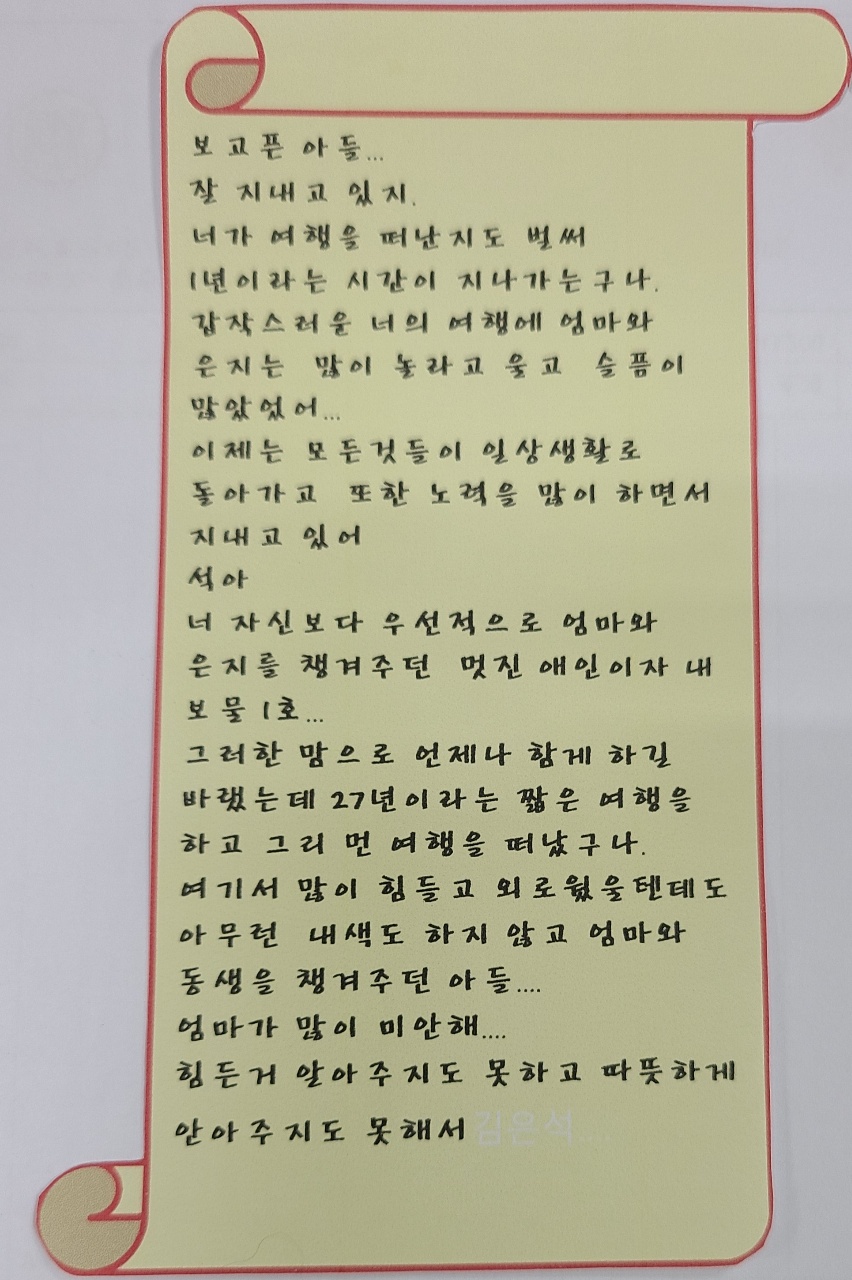 보고픈 아들...
잘 지내고 있지.
너가 여행을 떠난지도 벌써
1년이라는 시간이 지나가는구나.
갑작스러운 너의 여행에 엄마와
은지는 많이 놀라고 울고 슬픔이
많았었어...
이제는 모든것들이 일상생활로
돌아가고 또한 노력을 많이 하면서
지내고 있어
석아
너 자신보다 우선적으로 엄마와
은지를 챙겨주던 멋진 애인이자 내
보물 1호...
그러한 맘으로 언제나 함게 하길
바랬는데 27년이라는 짧은 여행을
하고 그리 먼 여행을 떠났구나.
여기서 많이 힘들고 외로웠울텐데도
아무런 내색도 하지 않고 엄마와
동생을 챙겨주던 아들....
엄마가 많이 미안해....
힘든거 알아주지도 못하고 따뜻하게
안아주지도 못해서 김은석....